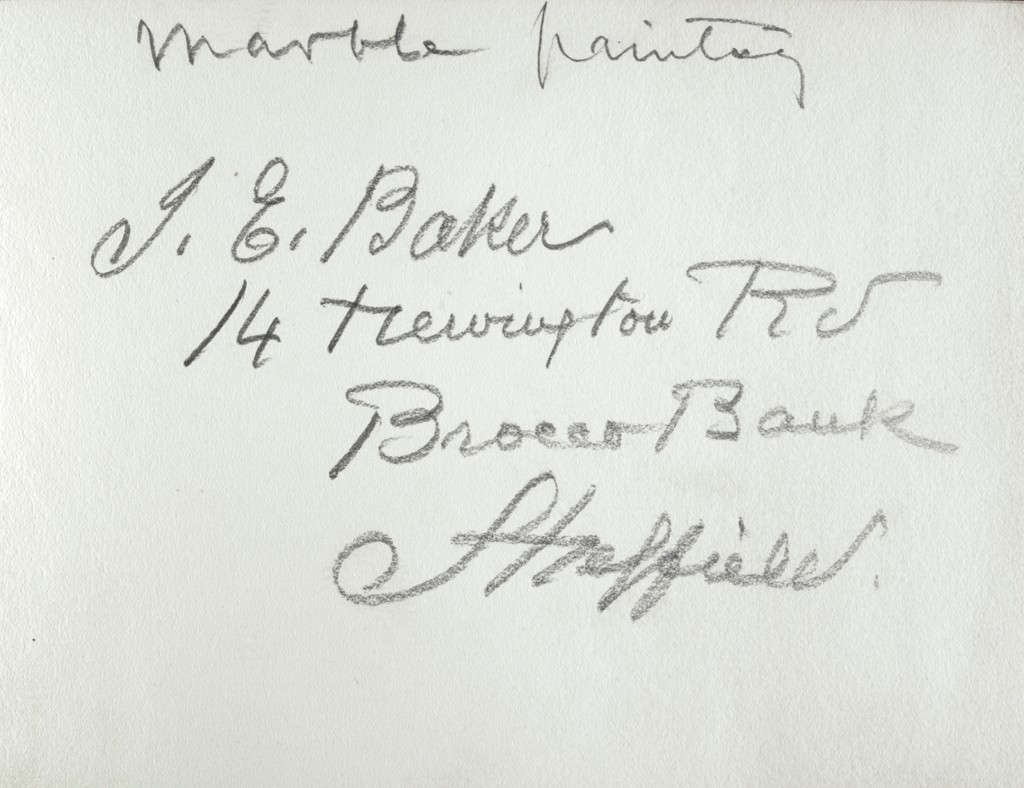 Marble painting
J. E. Baker
14 Newington Rd
Brocco Bank
Sheffield.